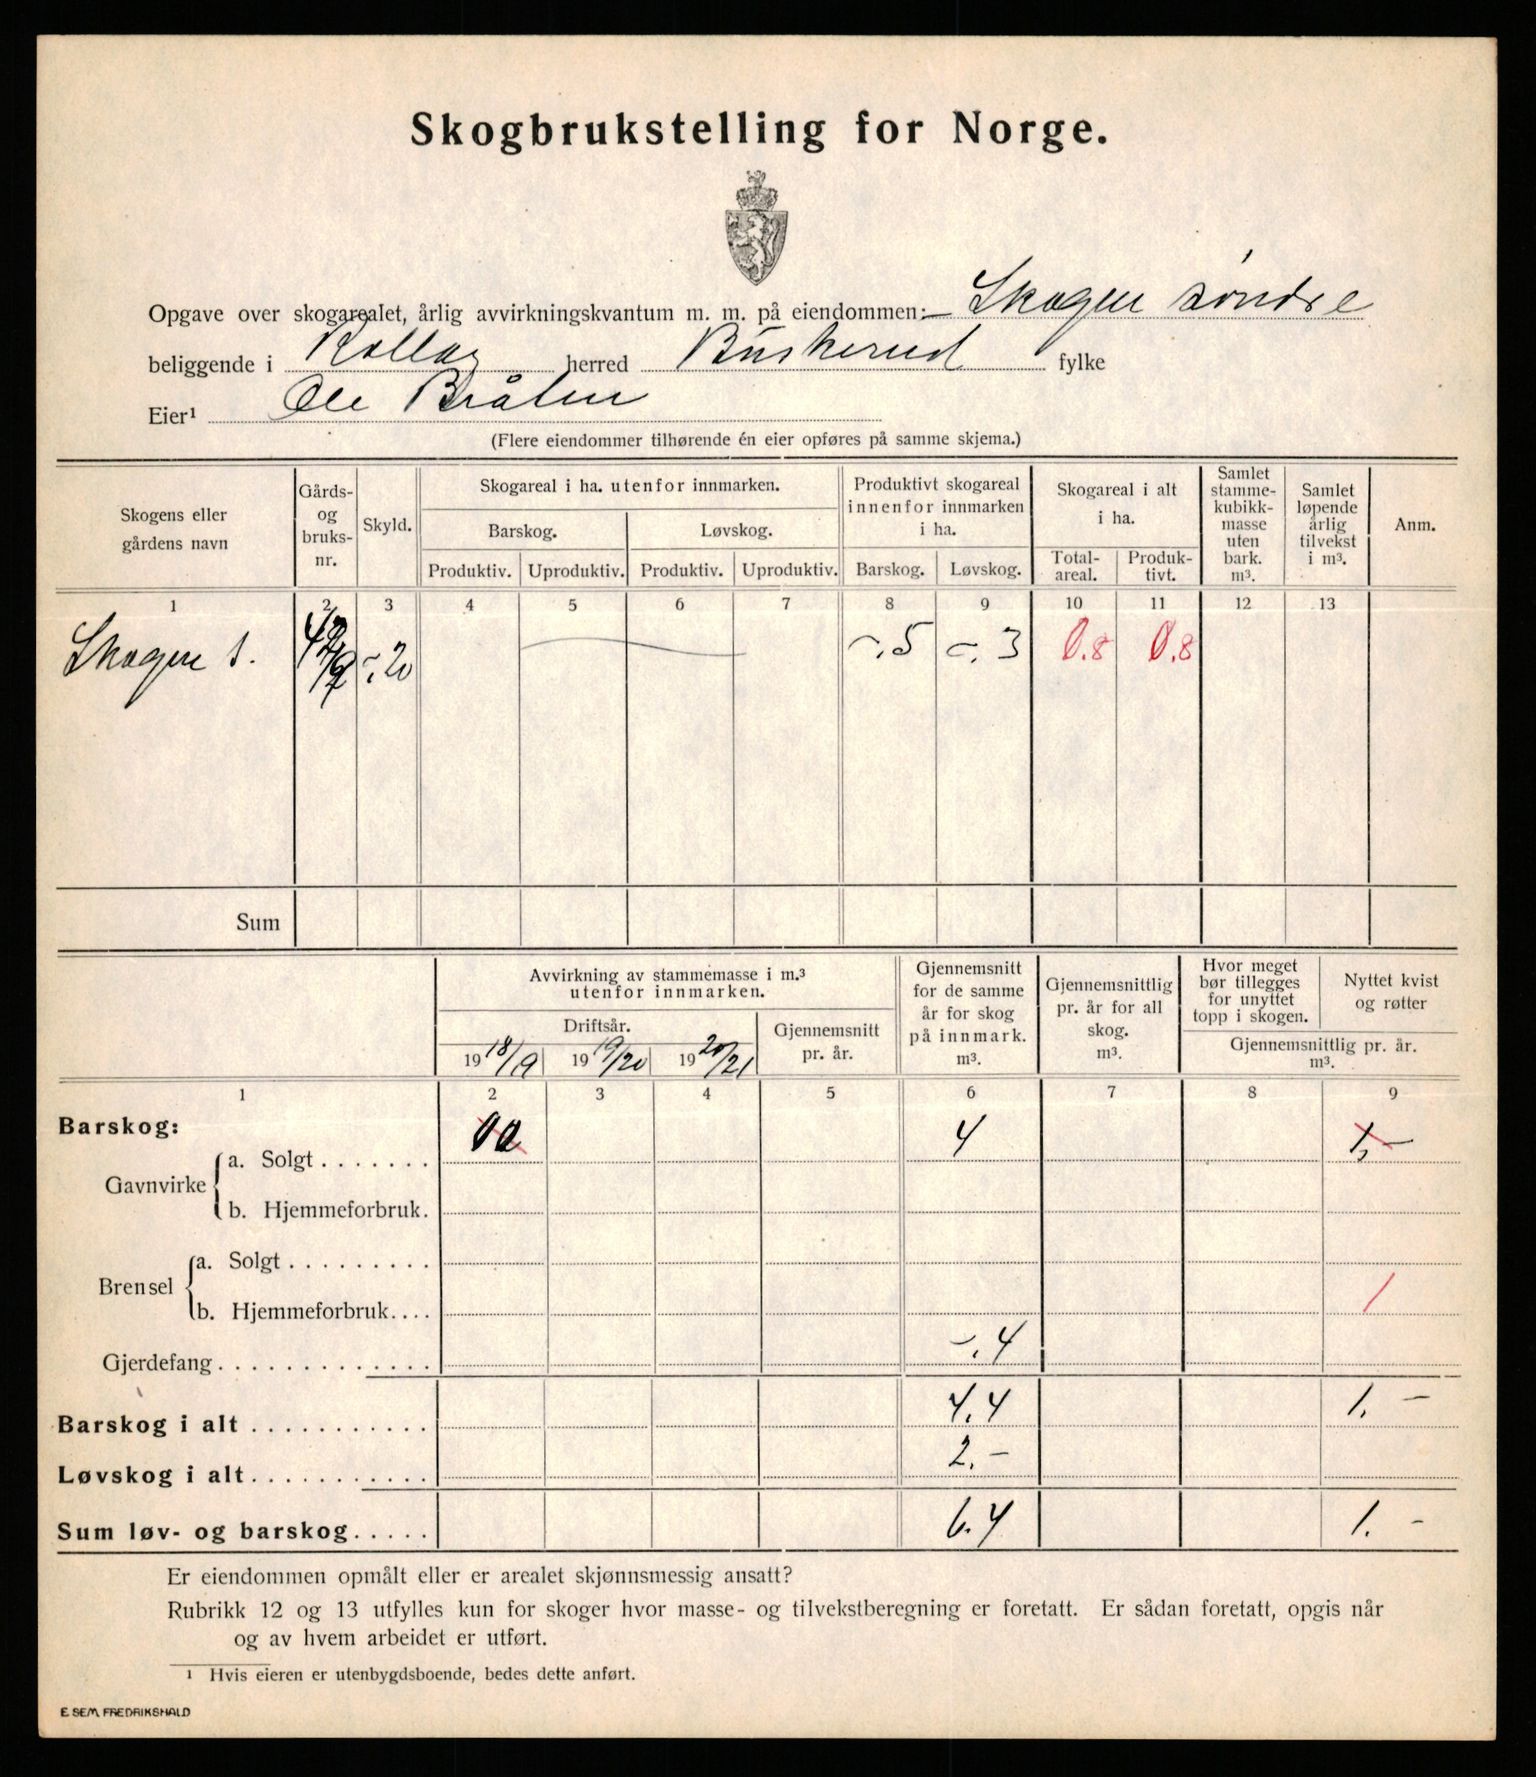 Skogbrukstelling for Norge.
Opgave over skogarealet, årlig avvirkningskvantum m. m. på eiendommen: Skogen søndre
beliggende i Rollag herred Buskerud fylke
Eier¹ Ole Bråten
(Flere eiendommer tilhørende én eier opføres på samme skjema.)
Skogens eller gårdens navn
Gårds- og bruks- nr.
Skyld.
Skogareal i ha. utenfor innmarken.
Barskog. Løvskog.
Produktiv. Uproduktiv. Produktiv. Uproduktiv.
Produktivt skogareal innenfor innmarken i ha.
Barskog. Løvskog.
Skogareal i alt i ha.
Total- areal. Produk- tivt.
Samlet stamme- kubikk- masse uten bark. m³.
Samlet løpende årlig tilvekst i m³.
Anm.
1 2 3 4 5 6 7 8 9 10 11 12 13
Skogen s. -.20 -.5 -.3 0.8 0.8
Sum
Avvirkning av stammemasse i m.³ utenfor innmarken.
Driftsår.
1918/19 1919/20 1920/21
Gjennemsnitt pr. år.
Gjennemsnitt for de samme år for skog på innmark. m³.
Gjennemsnittlig pr. år for all skog. m³.
Hvor meget bør tillegges for unyttet topp i skogen.
Nyttet kvist og røtter
Gjennemsnittlig pr. år. m³.
1 2 3 4 5 6 7 8 9
Barskog:
Gavnvirke a. Solgt....... 4 1,-
b. Hjemmeforbruk.
Brensel a. Solgt.........
b. Hjemmeforbruk.... 1
Gjerdefang............. -.4
Barskog i alt........... 4.4 1.-
Løvskog i alt........... 2.-
Sum løv- og barskog..... 6.4 1.-
Er eiendommen opmålt eller er arealet skjønnsmessig ansatt?
Rubrikk 12 og 13 utfylles kun for skoger hvor masse- og tilvekstberegning er foretatt. Er sådan foretatt, opgis når
og av hvem arbeidet er utført.
¹ Hvis eieren er utenbygdsboende, bedes dette anført.
E. SEM, FREDRIKSHALD